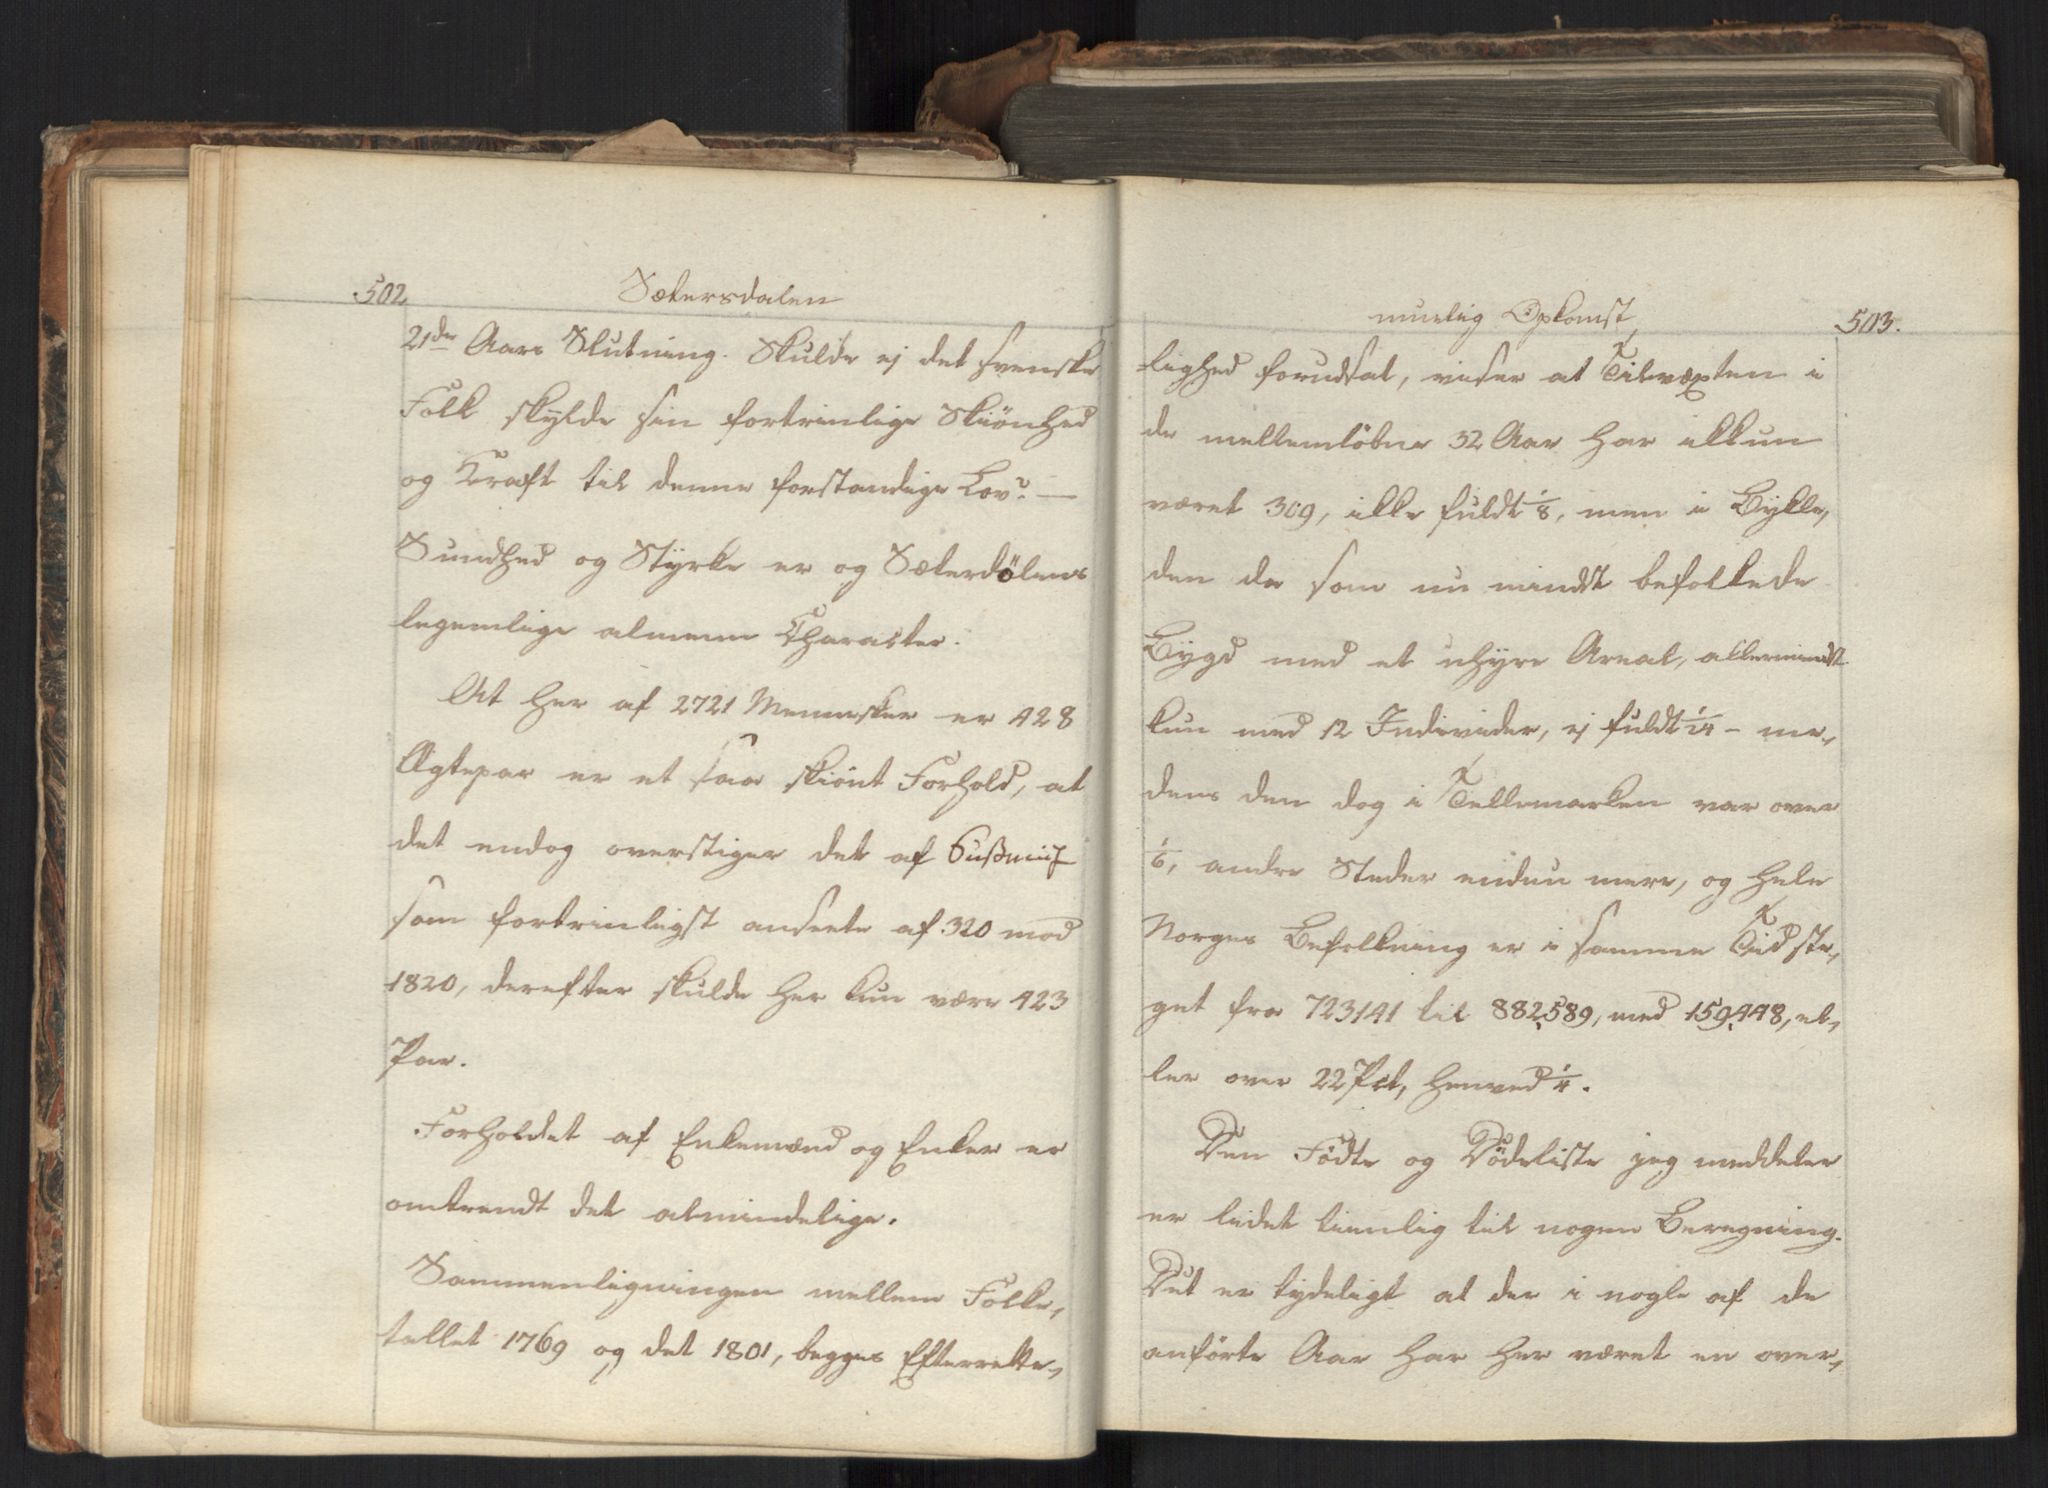 502
Sætersdalen
21de Aars Slutning. Skulde ej det svenske
Folk skylde sin fortrinlige Skiönhed
og Kraft til denne forstandige Lov? —
Sundhed og Styrke er og Sæterdölens
legemlige almene Character.
At her af 2721 Mennesker er 428
Ægtepar er et saa skiönt Forhold, at
det endog overstiger det af Sußmilch
som fortrinligst ansete af 320 mod
1820, derefter skulde her kun være 423
Par.
Forholdet af Enkemænd og Enker er
omtrendt det almindelige.
Sammenligningen mellem Folke-
tallet 1769 og det 1801, begges Efterrette-
muelig Opkomst
503.
lighed forudsat, viser at Tilvæxten i
de mellemlöbne 32 Aar har ikkun
været 309, ikke fuldt 1/8, men i Bykle,
den da som nu mindst befolkede
Bygd med et uhyre Areal, allermindst
kun med 12 Individer, ej fuldt 1/24 - me-
dens den dog i Tellemarken var over
1/6, andre Steder endnu mere, og hele
Norges Befolkning er i samme Tid ste-
get fra 723141 til 882,589, med 159,448, el-
ler over 22 Pct, henved 1/4.
Den Födte og Dödeliste jeg meddeler
er lidet tienlig til nogen Beregning.
Det er tydeligt at der i nogle af de
anförte Aar har her været en over-